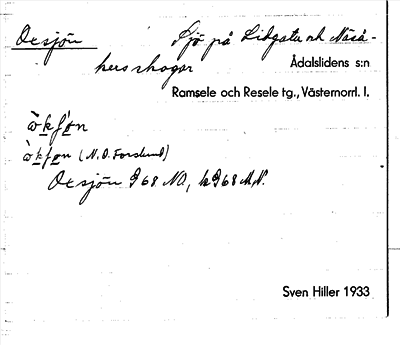 Oxsjön Sjö på Lidgatu och Näså-
hers skogar Ådalslidens s:n
Ramsele och Resele tg., Västernorrl. l.
(N. O. Forslund)
Oxsjön 968 NO,
Sven Hiller 1933